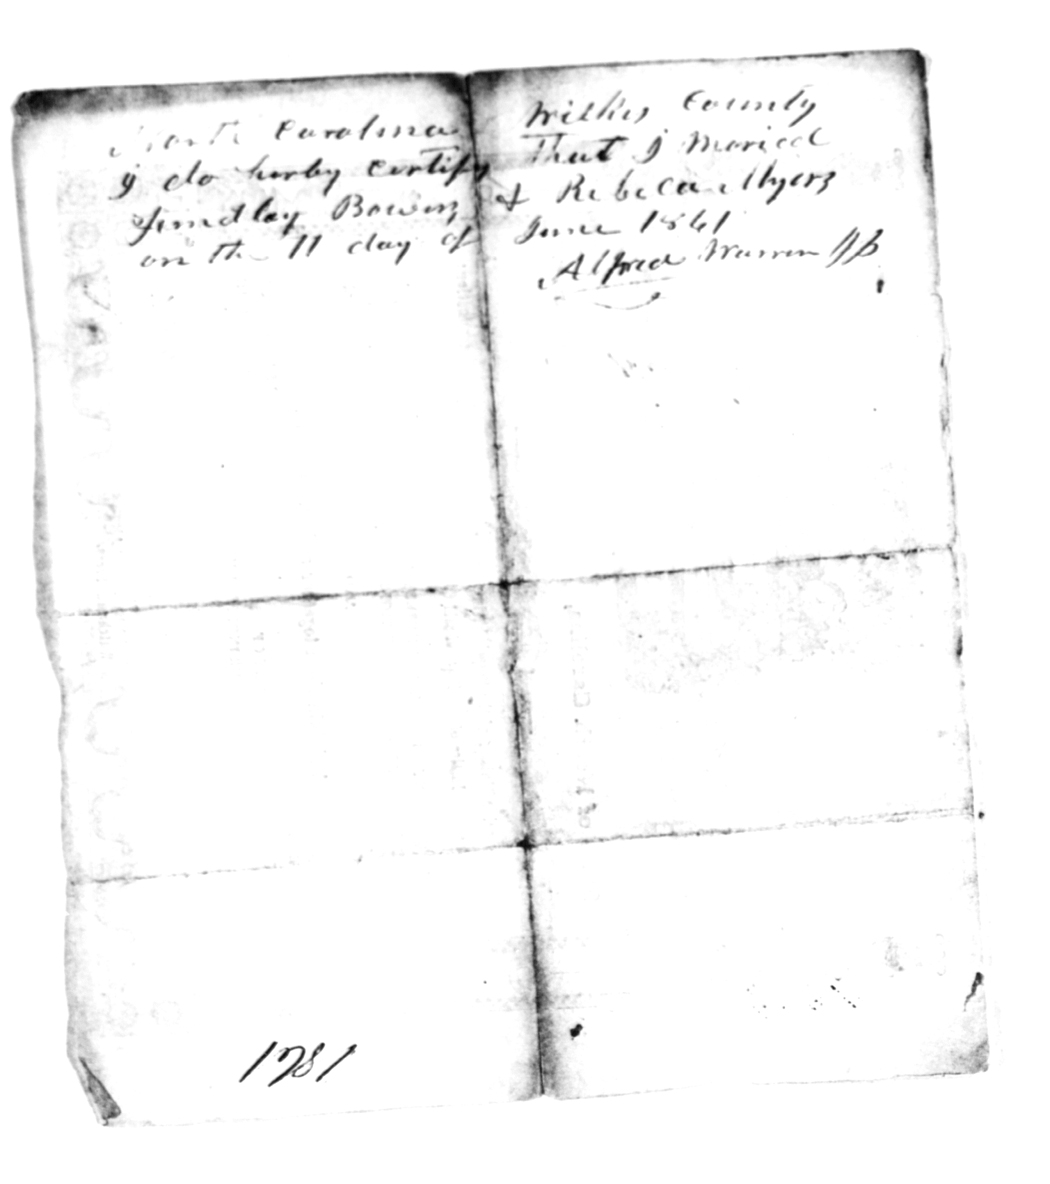 North Carolina Wilkes County
I do herby certify That I Maried
Findley Bowers & Rebeca Myers
on the 11 day of June 1861
Alfred Warren JP
1781